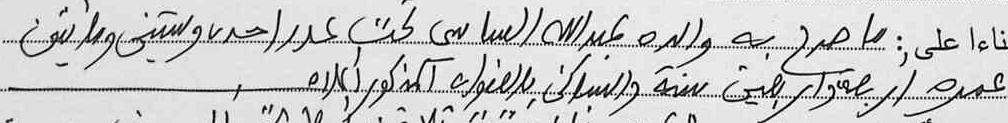 ناءا على: ما صرح به والده عبد الله السباسي تحت عدد احد وستين ومائتين
عمره اربعة واربعين سنة والساكن بالعنوان المذكور أعلاه